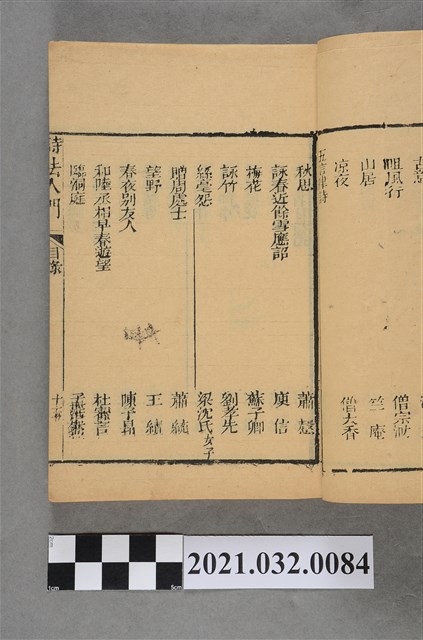 咀風行 僧宗渤
山居 竺庵
凉夜 僧大香
五言律詩
秋思 蕭愨
詠春近餘雪應詔 庾信
梅花 蘇子卿
詠竹 劉孝先
綠毫怨 梁沈氏女子
贈周處士 蕭
望野 王績
春夜別友人 陳子昂
和陸丞相早春遊望 杜審言
臨洞庭 孟浩然
詩法入門 目錄
2cm
1cm
5cm
2021.032.0084